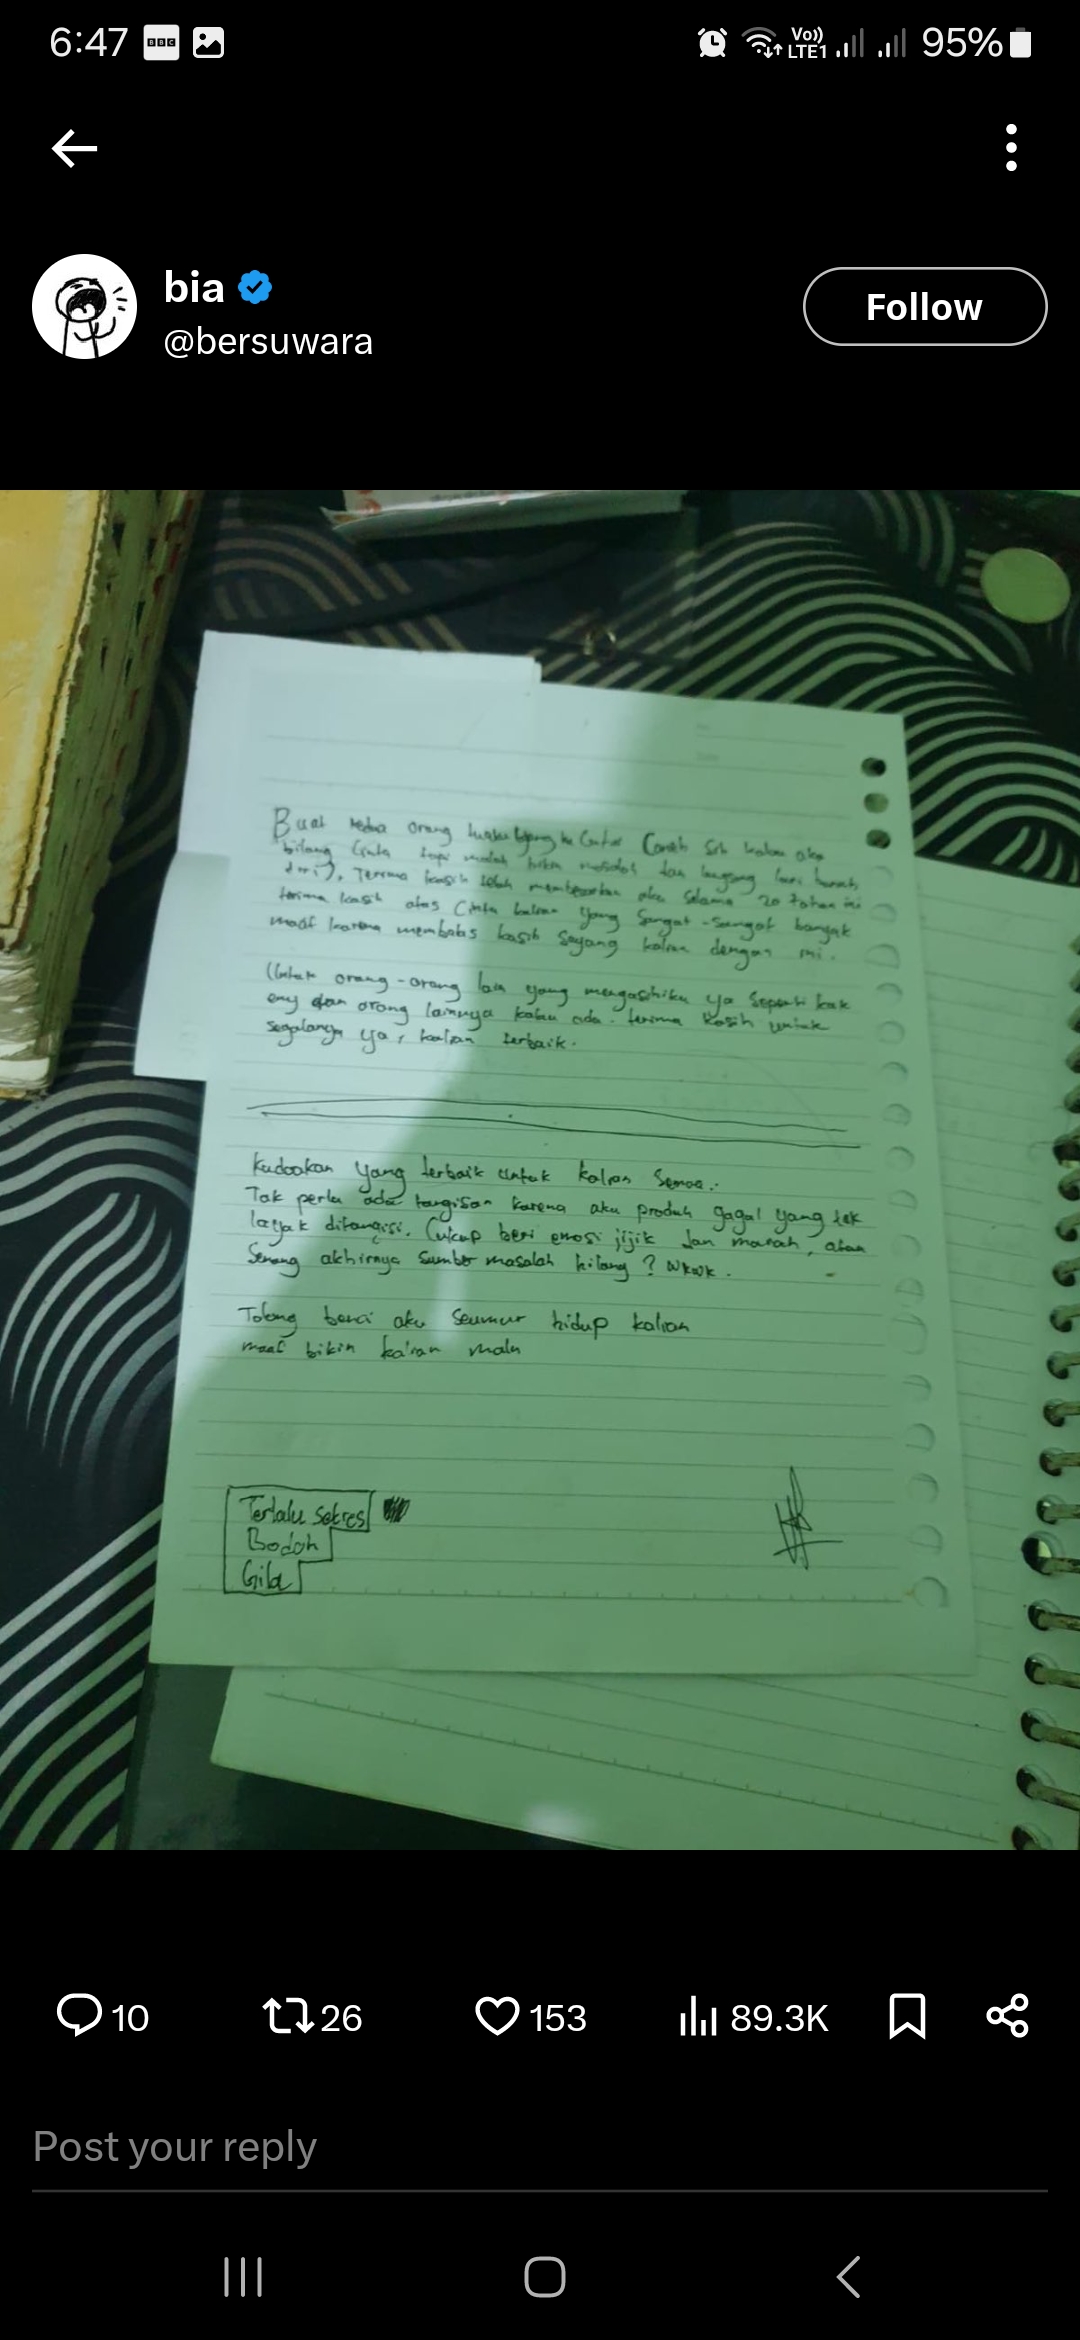 6:47
BBC
Vo))
LTE1
95%
bia
@bersuwara
Follow
Buat kedua orang tuaku yang ku cintai (aneh sih kalau aku
bilang cinta tapi malah bikin masalah dan langsung lari
terima kasih telah membesarkan aku selama 20 tahun ini
terima kasih atas cinta kalian yang sangat-sangat banyak
maaf karena membalas kasih sayang kalian dengan ini.
Untuk orang-orang lain yang mengasihiku ya seperti kak
eny dan orang lainnya kalau ada. terima kasih untuk
segalanya ya, kalian terbaik.
kudoakan yang terbaik untuk kalian semua.
Tak perlu ada tangisan karena aku produk gagal yang tak
layak ditangisi. Cukup beri emosi jijik dan marah, atau
Senang akhirnya sumber masalah hilang? wkwk.
Tolong benci aku seumur hidup kalian
maaf bikin kalian malu
Terlalu
Bodoh
Gila
10
26
153
89.3K
Post your reply